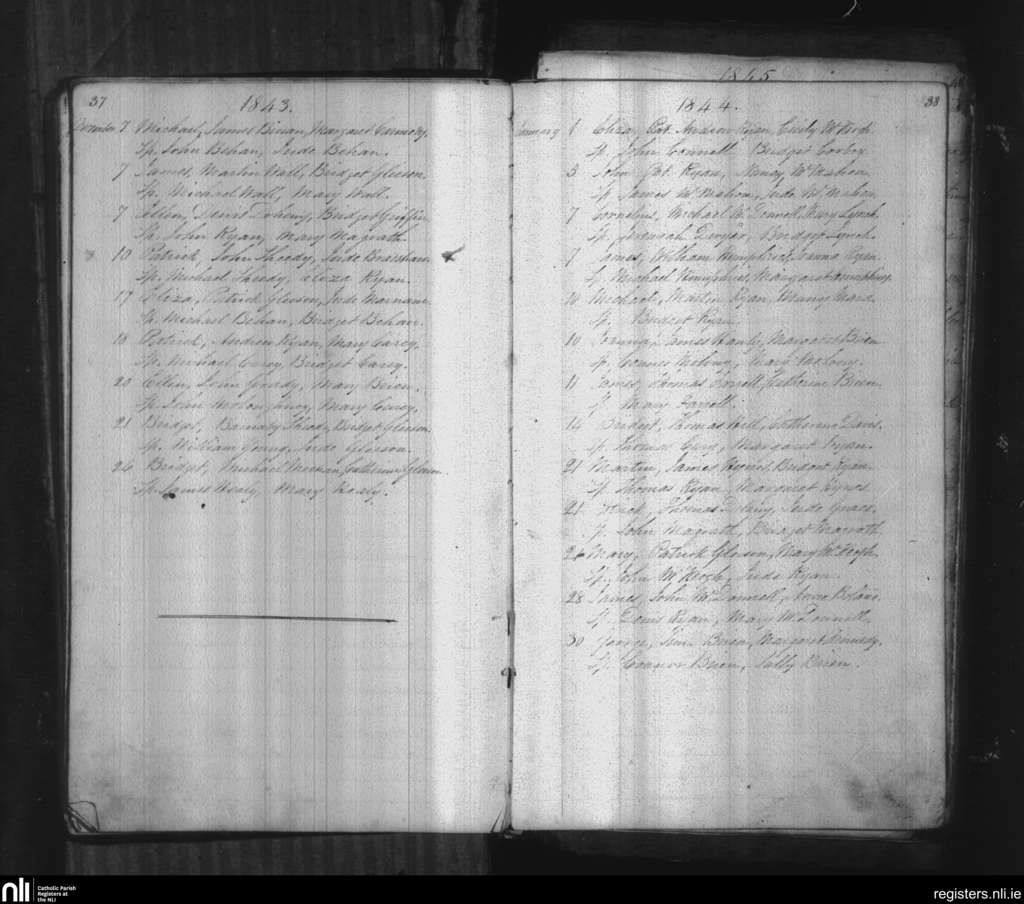 1845
37
1843.
December 7 Michael, James Birian, Margaret
Sp. John Behan, Jude Behan.
7 James, Martin Wall, Bridget Gleeson.
Sp. Michael Wall, Mary Wall.
7 Ellen, Denis Doheny, Bridget Griffin
Sp. John Ryan, Mary Magrath.
10 Patrick, John Theedy, Jude
Sp. Michael Theedy, Eliza Ryan.
17 Eliza, Patrick Gleeson, Jude
Sp. Michael Behan, Bridget Behan.
18 Patrick, Andrew Ryan, Mary Carey.
Sp. Michael Carey, Bridget Carey.
20 Ellen, John Grady, Mary Brien.
Sp. John Mary Carey.
21 Bridget, Barnaby Bridget Gleeson.
Sp. William Young, Jude Gleeson.
26 Bridget, Michael Meehan, Catherine
Sp. James Healy, Mary Healy.
38
1844.
January 1 Pat. Andrew Ryan,
Sp. John Connell Bridget Corboy.
3 John, Pat. Ryan, Nancy McMahon.
Sp. James McMahon, Jude McMahon.
7 Cornelius, Michael McDonnell, Mary Lynch.
Sp. Jeremiah Dwyer, Bridget Lynch.
7 James, William Humphries, Ryan.
Sp. Michael Humphries, Margaret Humphries
10 Michael, Martin Ryan, Nancy Mara.
Sp. Bridget Ryan.
10 James Margaret Brien
Sp. Connor Mary
11 James, Thomas Farrell, Catherine Brien.
Sp. Mary Farrell.
14 Bridget, Thomas Hill, Catherine Davis.
Sp. Thomas Margaret Ryan.
21 Martin, James Hynes, Bridget Ryan.
Sp. Thomas Ryan, Margaret Hynes.
21 Thomas Jude Grace.
Sp. John Magrath, Bridget Magrath.
24 Mary, Patrick Gleeson, Mary McKeogh.
Sp. John McKeogh, Jude Ryan.
28 James, John McDonnell, Anne Boland.
Sp. Denis Ryan, Mary McDonnell.
30 George, Tim. Brien, Margaret Kennedy.
Sp. Connor Brien, Sally Brien.
nli
Catholic Parish
Registers at
the NLI
registers.nli.ie